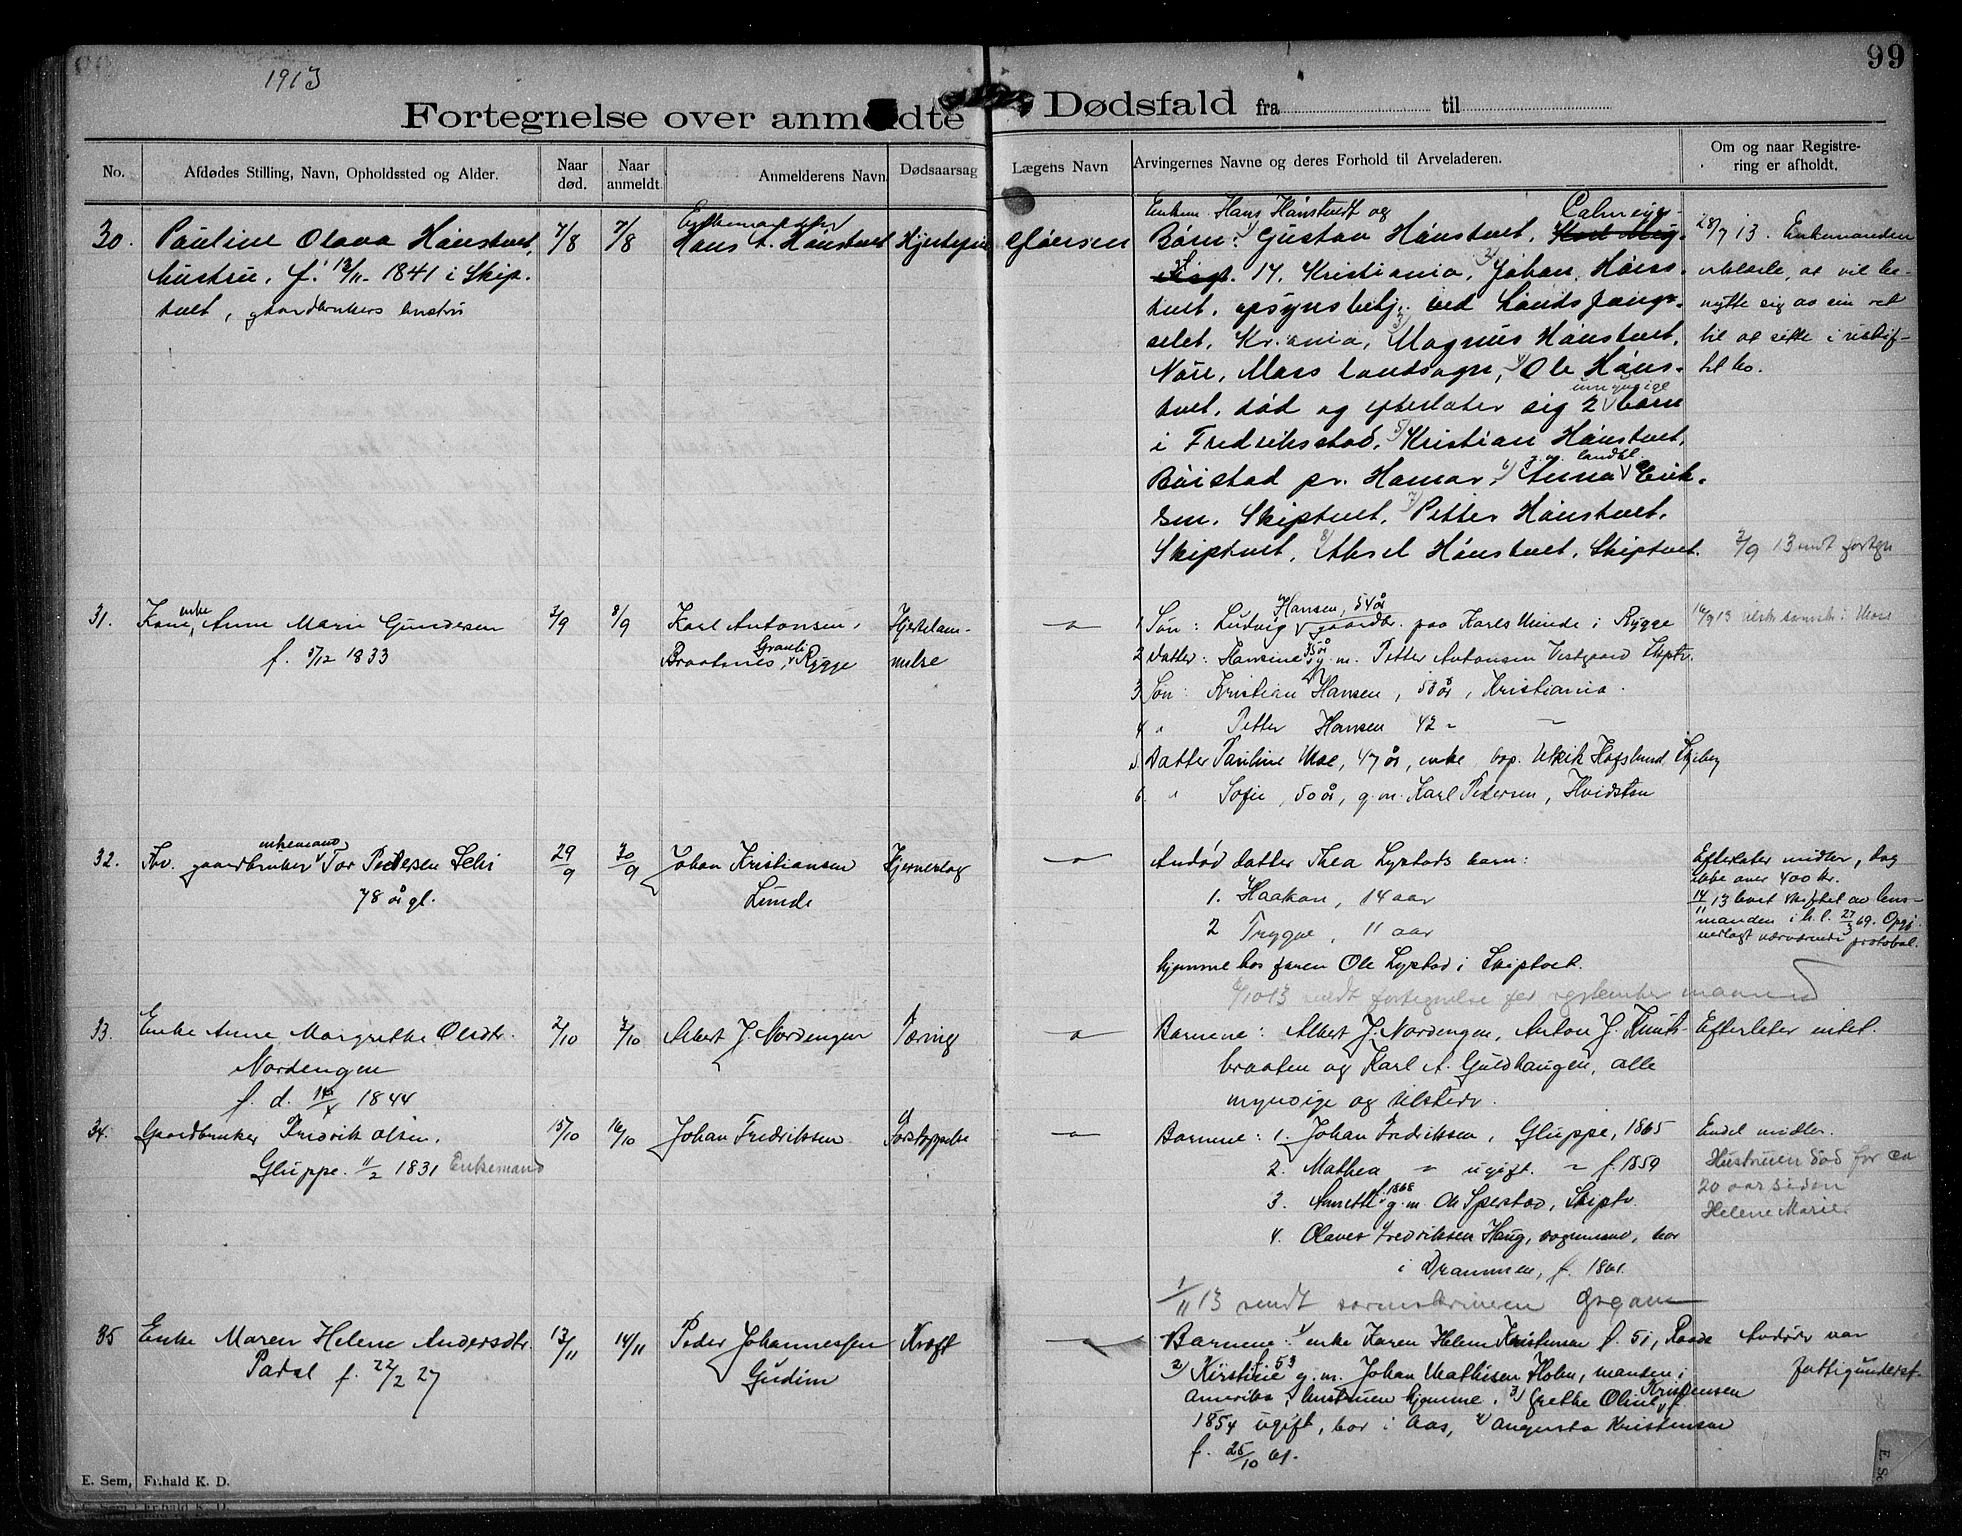 99
1913
Fortegnelse over anmeldte Dødsfald fra til
No.
Afdødes Stilling, Navn, Opholdssted og Alder.
Naar død.
Naar anmeldt.
Anmelderens Navn
Dødsaarsag
Lægens Navn
Arvingernes Navne og deres Forhold til Arveladeren.
Om og naar Registrering er afholdt.
30. Pauline Olava Hånstvet,
hustru, f. 12/11 1841 i Skip-
tvet, gaardbrukers hustru
7/8
7/8
Enkemanden
Hans A. Hånstvet
Hjertefeil
Sörensen
Enkem. Hans Hånstvedt og
Børn: 1) Gustav Hånstvet, Calmeyers-
gt. 14, Kristiania, 2) Johan Håns-
tvet, opsynsbetj. ved Landsfæng-
selet, Kr.ania, 3) Magnus Hånstvet,
Nöre, Moss landsogn, 4) Ole Håns-
tvet, död og efterlater sig 2 umyndige børn
i Fredriksstad, 5) Kristian Hånstvet,
Böistad pr. Hamar, 6) Anna g.m. landh. Erik-
sen, Skiptvet, 7) Petter Hånstvet,
Skiptvet, 8) Aksel Hånstvet, Skiptvet.
28/7 13. Enkemanden
erklærte, at vil be-
nytte sig av sin ret
til at sitte i uskif-
tet bo.
2/9 13 sendt fortgn
31. Kone, enke, Anne Marie Gundersen
f. 5/12 1833
7/9
8/9
Karl Antonsen,
Braatnes, Rygge
Hjertelam-
melse
1 Søn: Ludvig Hansen, 54 år gaardbr. paa Karls Minde i Rygge
2 Datter: Hansine 55 år g.m. Petter Antonsen Vestgaard Skiptv.
3 Søn: Kristian Hansen, 53 år, Kristiania.
4 " Petter Hansen 42 " —
5 Datter Pauline Moe, 47 år, enke Hafslund Skjeberg
6. " Sofie, 50 år, g.m. Karl Pedersen, Hvidsten
16/9 13
32. Fhv. gaardbruker enkemand Tor Pedersen Lehi
78 år gl.
29/9
30/9
Johan Kristiansen
Lunde
Hjerneslag
Avdød datter Thea Lystads barn:
1. Haakon, 14 aar
2 Trygve, 11 aar
hjemme hos faren Ole Lystad i Skiptvet.
6/10 13 sendt fortegnelse for september maaned
Efterlater midler, dog
ikke over 400 kr.
14/11 13 levert skiftet av lens-
manden i h.t. 27/3 69. Opgj.
nedlagt nærværende protokol.
33. Enke Anne Margrethe Olsdtr.
Nordengen
f. d. 14/4 1844
2/10
3/10
Albert J. Nordengen
Tæring
Barnene: Albert J. Nordengen, Anton J. Knuts-
braaten og Karl A. Guldhaugen, alle
myndige og tilstede.
Efterlater intet.
34. Gaardbruker Fredrik Olsen,
Gluppe. 11/2 1831 Enkemand
15/10
16/10
Johan Fredriksen
Forstoppelse
Barnene: 1. Johan Fredriksen, Gluppe, 1865
2. Mathea " ugift. " f. 1859
3. Annette f. 1868 g.m. Ole Sperstad, Skiptv.
4. Olaves Fredriksen Haug, vognmand, bor
i Drammen, f. 1861.
1/11 13 sendt sorenskriveren Opgave
Endel midler.
Hustruen død for ca
20 aar siden
Helene Marie.
35 Enke Maren Helene Andersdtr.
Padal f. 22/2 27
13/11
14/11
Peder Johannessen
Gudim
Kræft
Barnene: 1) enke Karen Helene Kristensen f. 51, Raade
2) Kirstine f. 53 g.m. Johan Mathisen Holm, manden i
Amerika, hustruen hjemme. 3) Grethe Oline Kristensen f.
1854 ugift, bor i Aas, 4) Augusta Kristensen
f. 25/10 61.
Avdøde var
fattigunderst.
E. Sem, Fr.hald K. D.